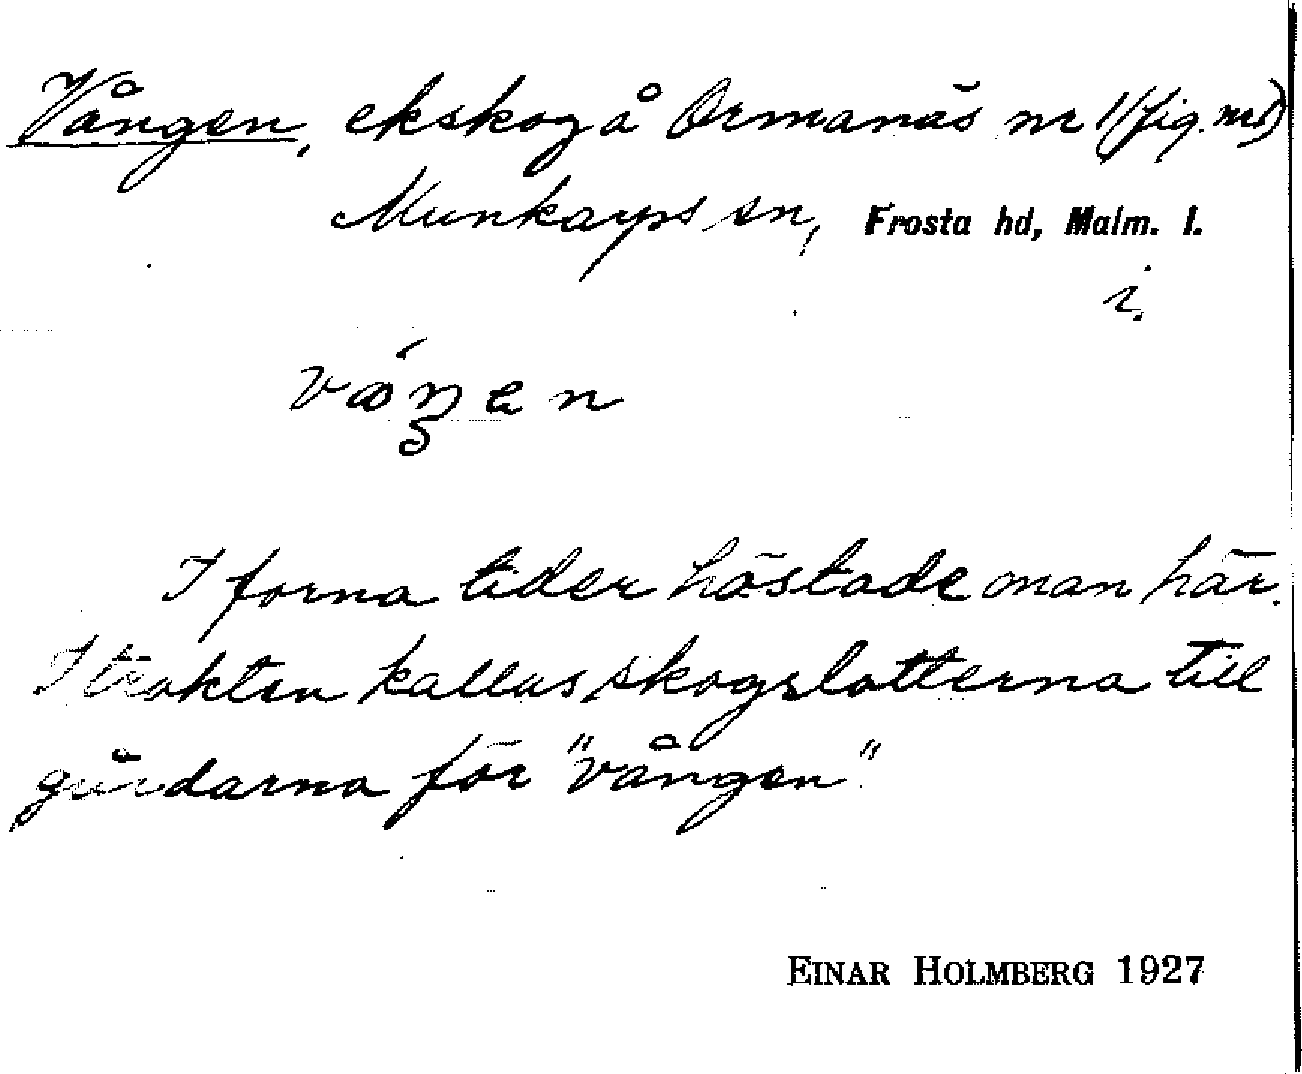 Vången, ekskog å Ormanäs nr 1 (fig. nr 1)
Munkarps sn, Frosta hd, Malm. l.
i.
I forna tider höstade man här.
I trakten kallas skogslotterna till
gårdarna för "vången".
EINAR HOLMBERG 1927